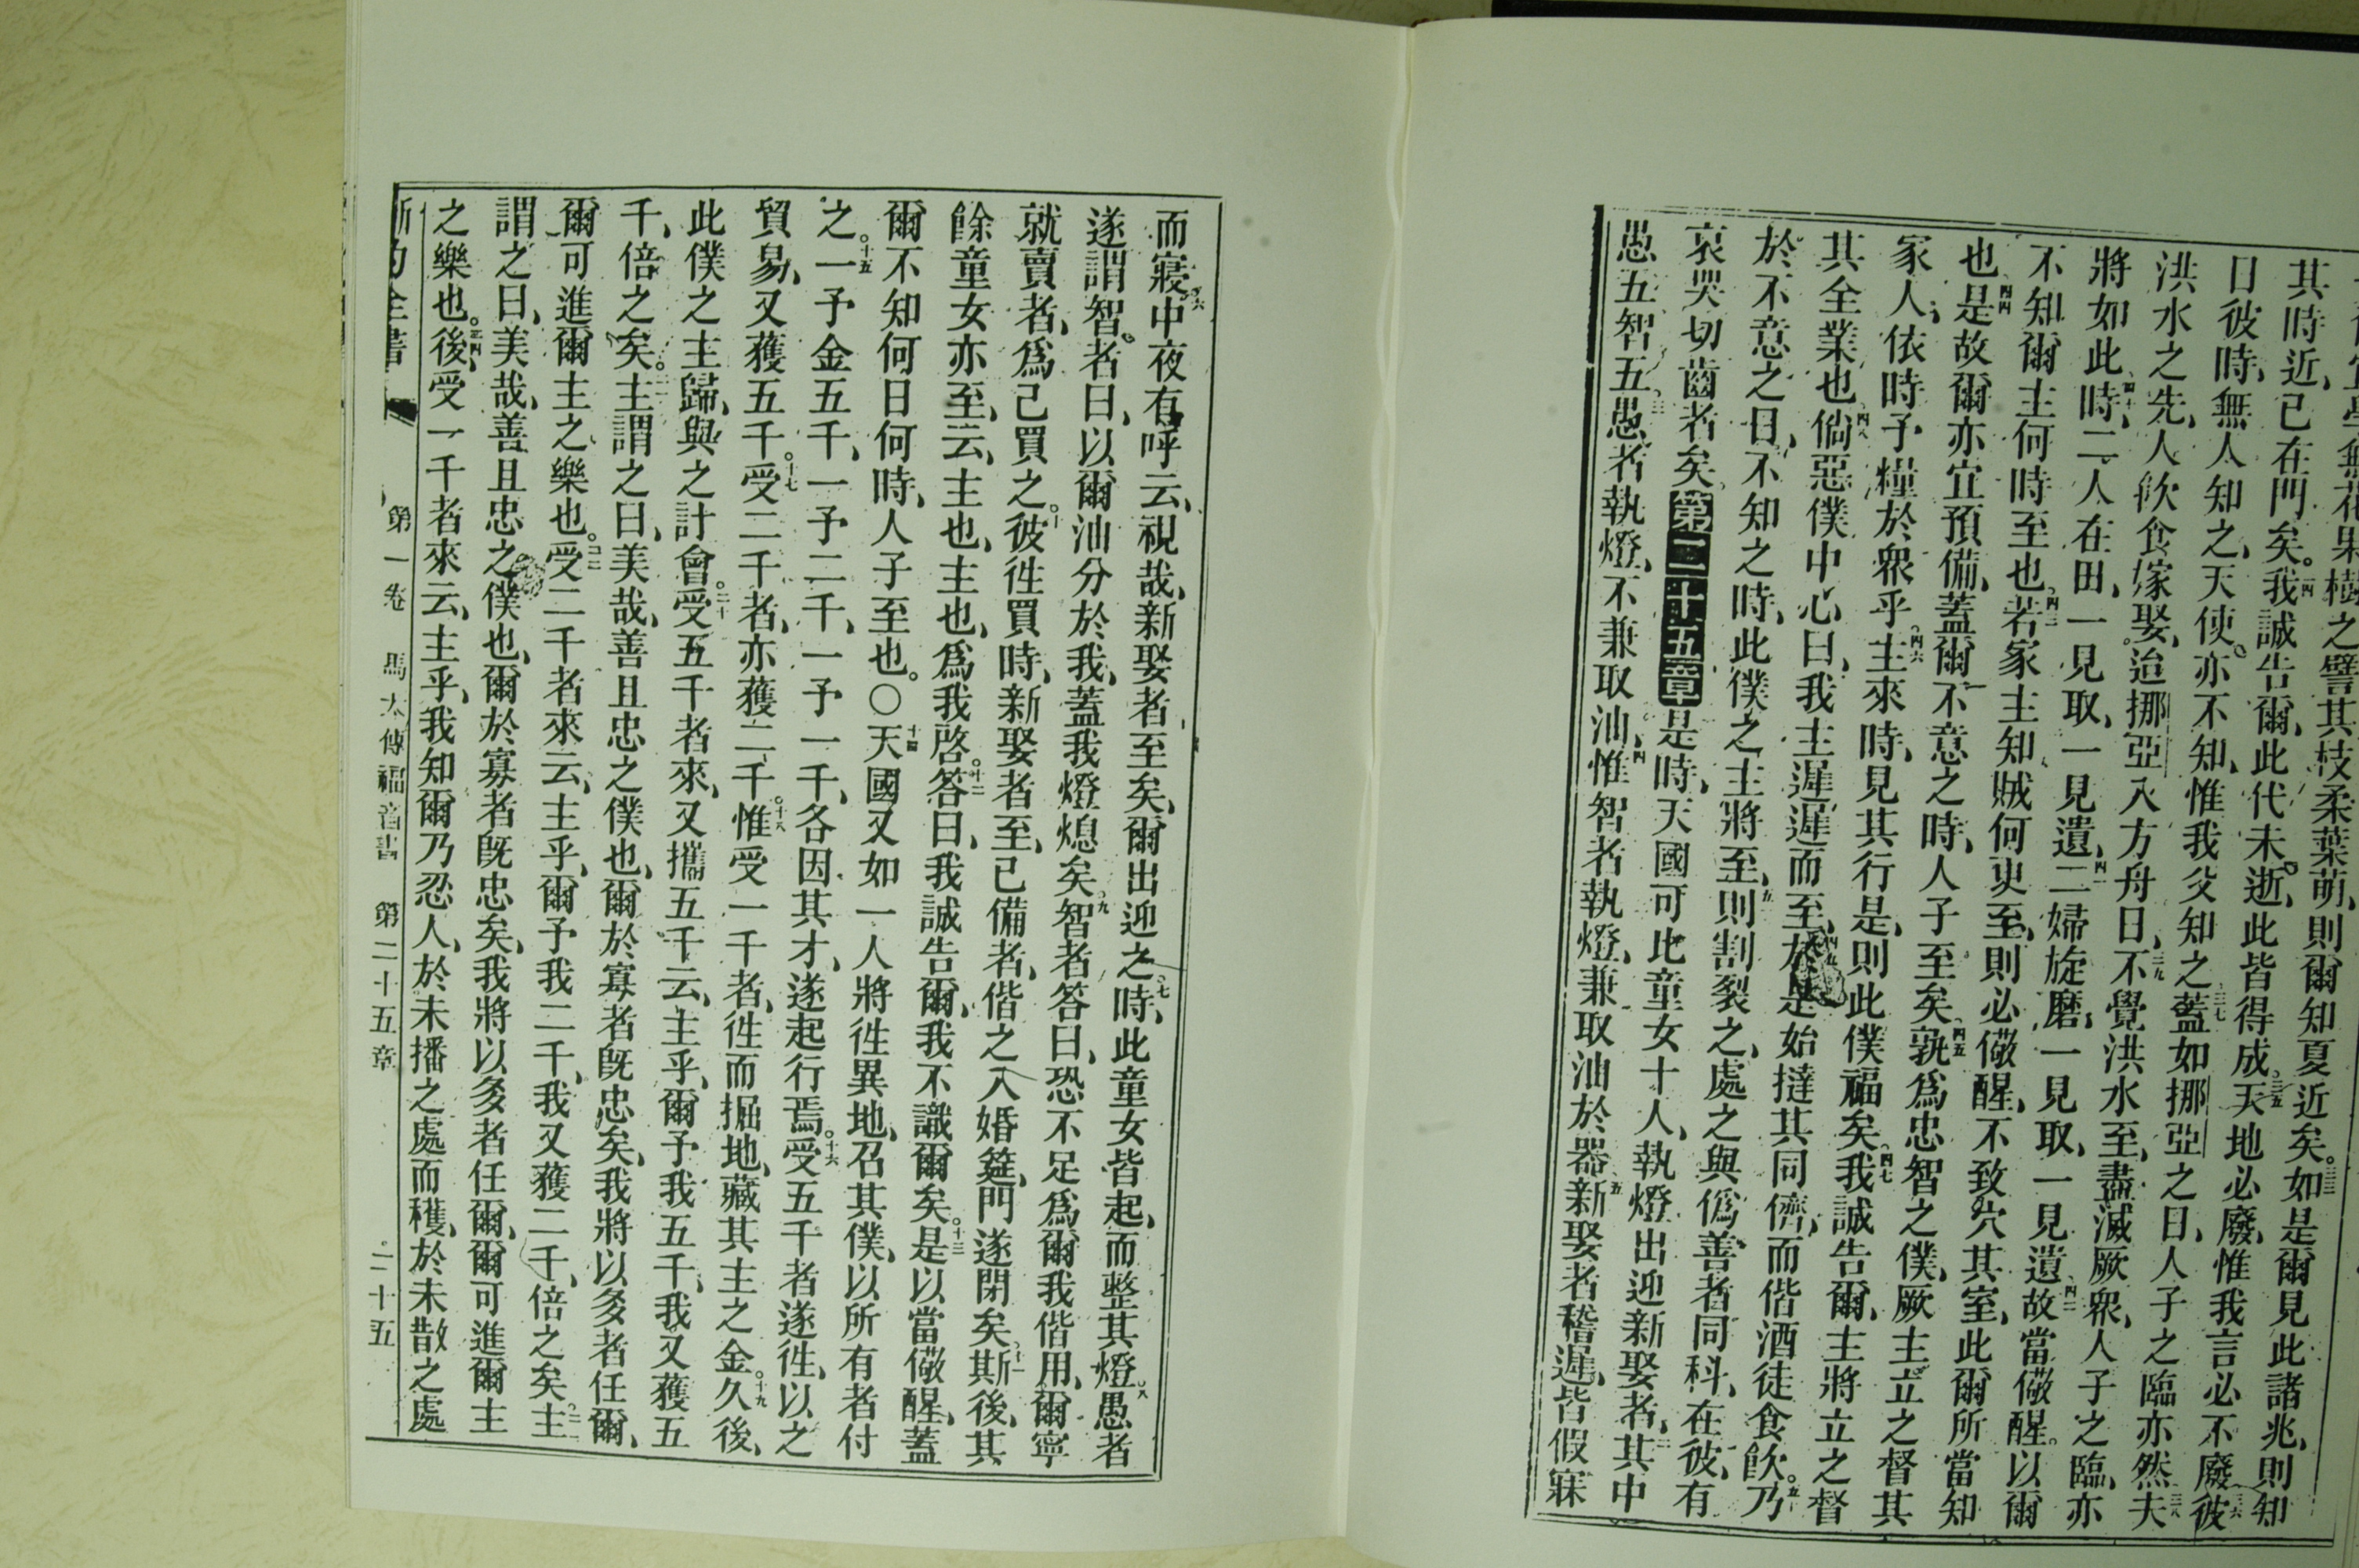 宜學無花果樹之譬其枝柔葉萌、則爾知夏近矣。三三如是爾見此諸兆、則知
其時近、已在門矣。三四我誠告爾、此代未逝、此皆得成三五天地必廢、惟我言必不廢三六彼
日彼時、無人知之、天使亦不知、惟我父知之三七蓋如挪亞之日、人子之臨亦然三八夫
洪水之先、人飲食嫁娶。迨挪亞入方舟日、三九不覺洪水至、盡滅厥衆、人子之臨、亦
將如此、四十時、二人在田、一見取、一見遺、四一二婦旋磨、一見取、一見遺四二故當儆醒。以爾
不知爾主何時至也四三若家主知賊何更至、則必儆醒、不致穴其室、此爾所當知
也四四是故爾亦宜預備、蓋爾不意之時、人子至矣四五孰爲忠智之僕、厥主立之督其
家人、依時予糧於衆乎四六主來時、見其行是、則此僕福矣四七我誠告爾、主將立之督
其全業也四八倘惡僕中心曰、我主遲遲而至、四九於是始撻其同儕、而偕酒徒食飲。五十乃
於不意之日、不知之時、此僕之主將至、五一則割裂之、處之與僞善者同科、在彼、有
哀哭切齒者矣第二十五章是時、天國可比童女十人、執燈出迎新娶者、二其中
愚五智五三愚者執燈、不兼取油、四惟智者執燈、兼取油於器五新娶者稽遲、皆假寐
而寢六中夜有呼云、視哉、新娶者至矣、爾出迎之七時、此童女皆起、而整其燈八愚者
遂謂智者曰、以爾油分於我、蓋我燈熄矣九智者答曰、恐不足爲爾我偕用、爾寧
就賣者、爲己買之。十彼往買時、新娶者至、已備者、偕之入婚筵、門遂閉矣十一斯後、其
餘童女亦至、云、主也、主也、爲我啓十二答曰、我誠告爾、我不識爾矣。十三是以當儆醒、蓋
爾不知何日何時、人子至也。〇十四天國又如一人將往異地、召其僕、以所有者付
之。十五一予金五千、一予二千、一予一千、各因其才、遂起行焉。十六受五千者遂往、以之
貿易、又獲五千。十七受二千者、亦獲二千十八惟受一千者、往而掘地、藏其主之金。十九久後、
此僕之主歸、與之計會。二十受五千者來、又攜五千云、主乎、爾予我五千、我又獲五
千、倍之矣。二一主謂之曰、美哉、善且忠之僕也、爾於寡者旣忠矣、我將以多者任爾、
爾可進爾主之樂也。二二受二千者來云、主乎、爾予我二千、我又獲二千、倍之矣二三主
謂之曰、美哉、善且忠之僕也、爾於寡者旣忠矣、我將以多者任爾、爾可進爾主
之樂也。二四後、受一千者來云、主乎、我知爾乃忍人、於未播之處而穫、於未散之處
新約全書 第一卷 馬太傳福音書 第二十五章 二十五